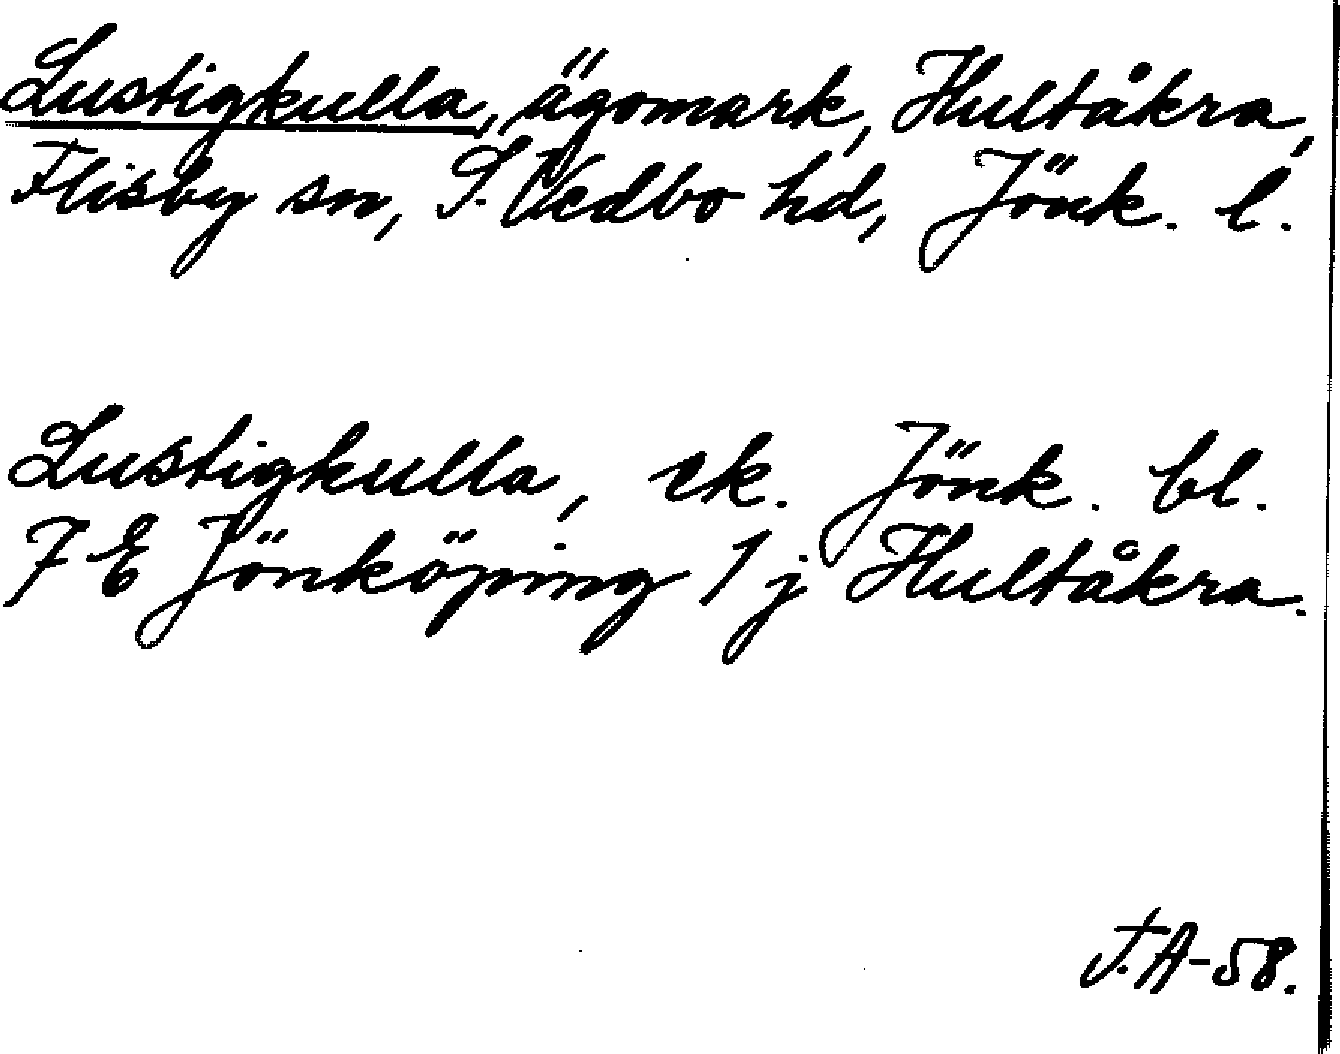 Lustigkulla, ägomark, Hultåkra,
Flisby sn, S. Vedbo hd, Jönk. l.
Lustigkulla, ek. Jönk. bl.
7 E Jönköping 1 j Hultåkra.
J.A-58.